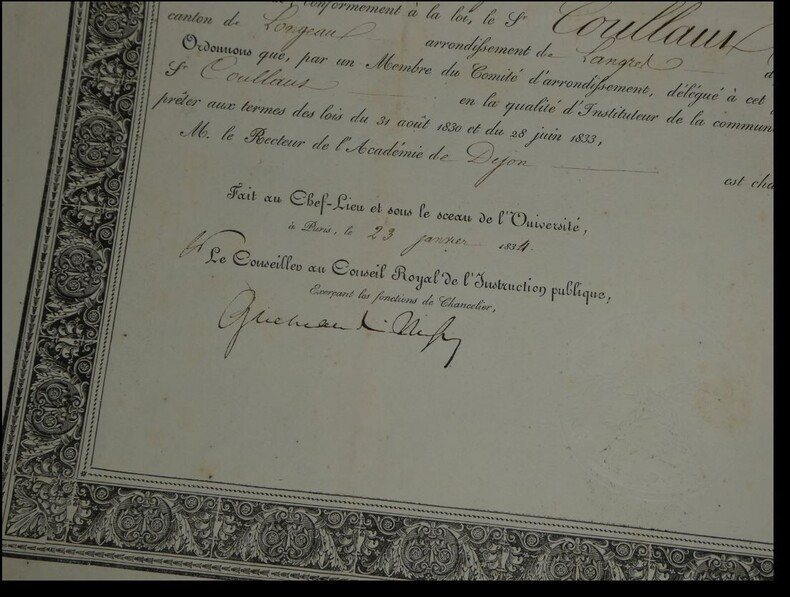 conformément à la loi, le Sr Coullaux
canton de Longeau arrondissement de Langres
Ordonnons que, par un Membre du Comité d'arrondissement, délégué à cet
Sr Coullaux en la qualité d'Instituteur de la commun
prêter aux termes des lois du 31 août 1830 et du 28 juin 1833,
M. le Recteur de l'Académie de Dijon est cha
Fait au Chef-Lieu et sous le sceau de l'Université,
à Paris, le 23 janvier 1834.
Le Conseiller au Conseil Royal de l'Instruction publique,
Exerçant les fonctions de Chancelier,